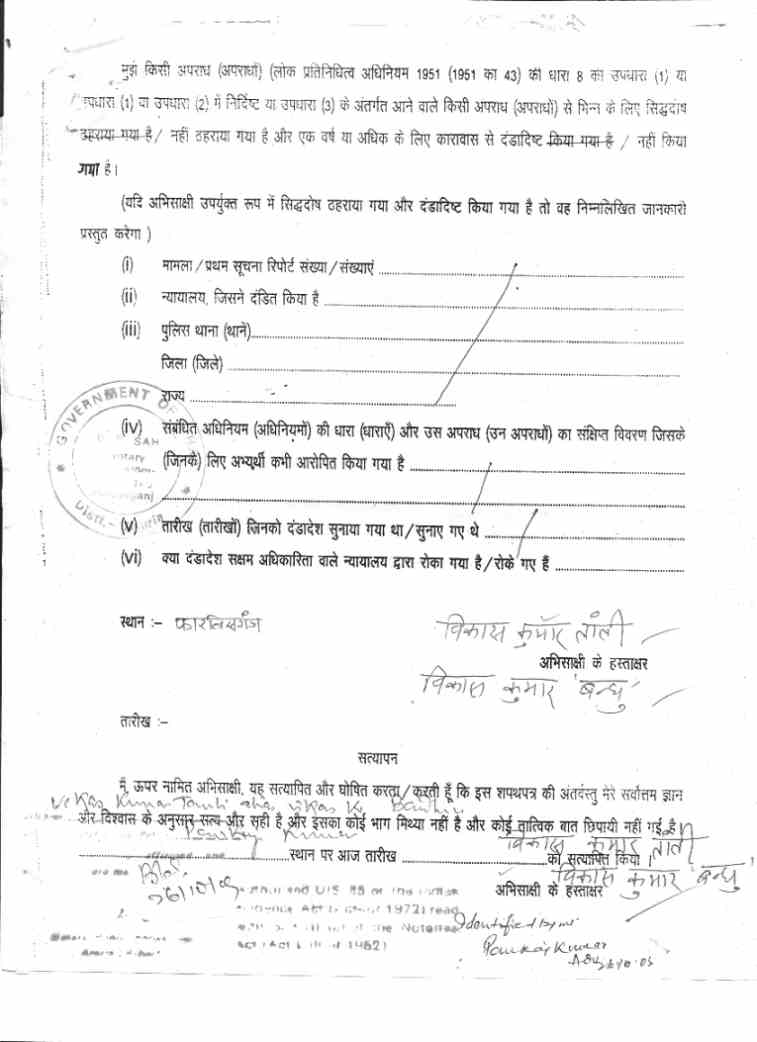 मुझे किसी अपराध (अपराधों) (लोक प्रतिनिधित्व अधिनियम 1951 (1951 का 43) की धारा 8 की उपधारा (1) या
उपधारा (1) या उपधारा (2) में निर्दिष्ट या उपधारा (3) के अंतर्गत आने वाले किसी अपराध (अपराधों) से भिन्न के लिए सिद्धदोष
ठहराया गया है / नहीं ठहराया गया है और एक वर्ष या अधिक के लिए कारावास से दंडादिष्ट किया गया है / नहीं किया
गया है।
(यदि अभिसाक्षी उपर्युक्त रूप में सिद्धदोष ठहराया गया और दंडादिष्ट किया गया है तो वह निम्नलिखित जानकारी
प्रस्तुत करेगा )
(i) मामला / प्रथम सूचना रिपोर्ट संख्या / संख्याएं
(ii) न्यायालय, जिसने दंडित किया है
(iii) पुलिस थाना (थाने)
जिला (जिले)
राज्य
GOVERNMENT OF
SAH
(iv) संबंधित अधिनियम (अधिनियमों) की धारा (धाराएँ) और उस अपराध (उन अपराधों) का संक्षिप्त विवरण जिसके
(जिनके) लिए अभ्यर्थी कभी आरोपित किया गया है
(v) तारीख (तारीखों) जिनको दंडादेश सुनाया गया था / सुनाए गए थे
(vi) क्या दंडादेश सक्षम अधिकारिता वाले न्यायालय द्वारा रोका गया है / रोके गए हैं
स्थान :- फारबिसगंज
विकास कुमार तांती
अभिसाक्षी के हस्ताक्षर
विकास कुमार 'बन्धु'
तारीख :-
सत्यापन
मैं, ऊपर नामित अभिसाक्षी, यह सत्यापित और घोषित करता / करती हूँ कि इस शपथपत्र की अंतर्वस्तु मेरे सर्वोत्तम ज्ञान
Vikas Kumar Tanti alias Vikas Kr. Bandhu
और विश्वास के अनुसार सत्य और सही है और इसका कोई भाग मिथ्या नहीं है और कोई तात्विक बात छिपायी नहीं गई है।
Pankaj Kumar
विकास कुमार तांती
स्थान पर आज तारीख को सत्यापित किया ।
विकास कुमार बन्धु
अभिसाक्षी के हस्ताक्षर
26/10/05
Identified by me
Pankaj Kumar
Adv 26.10.05